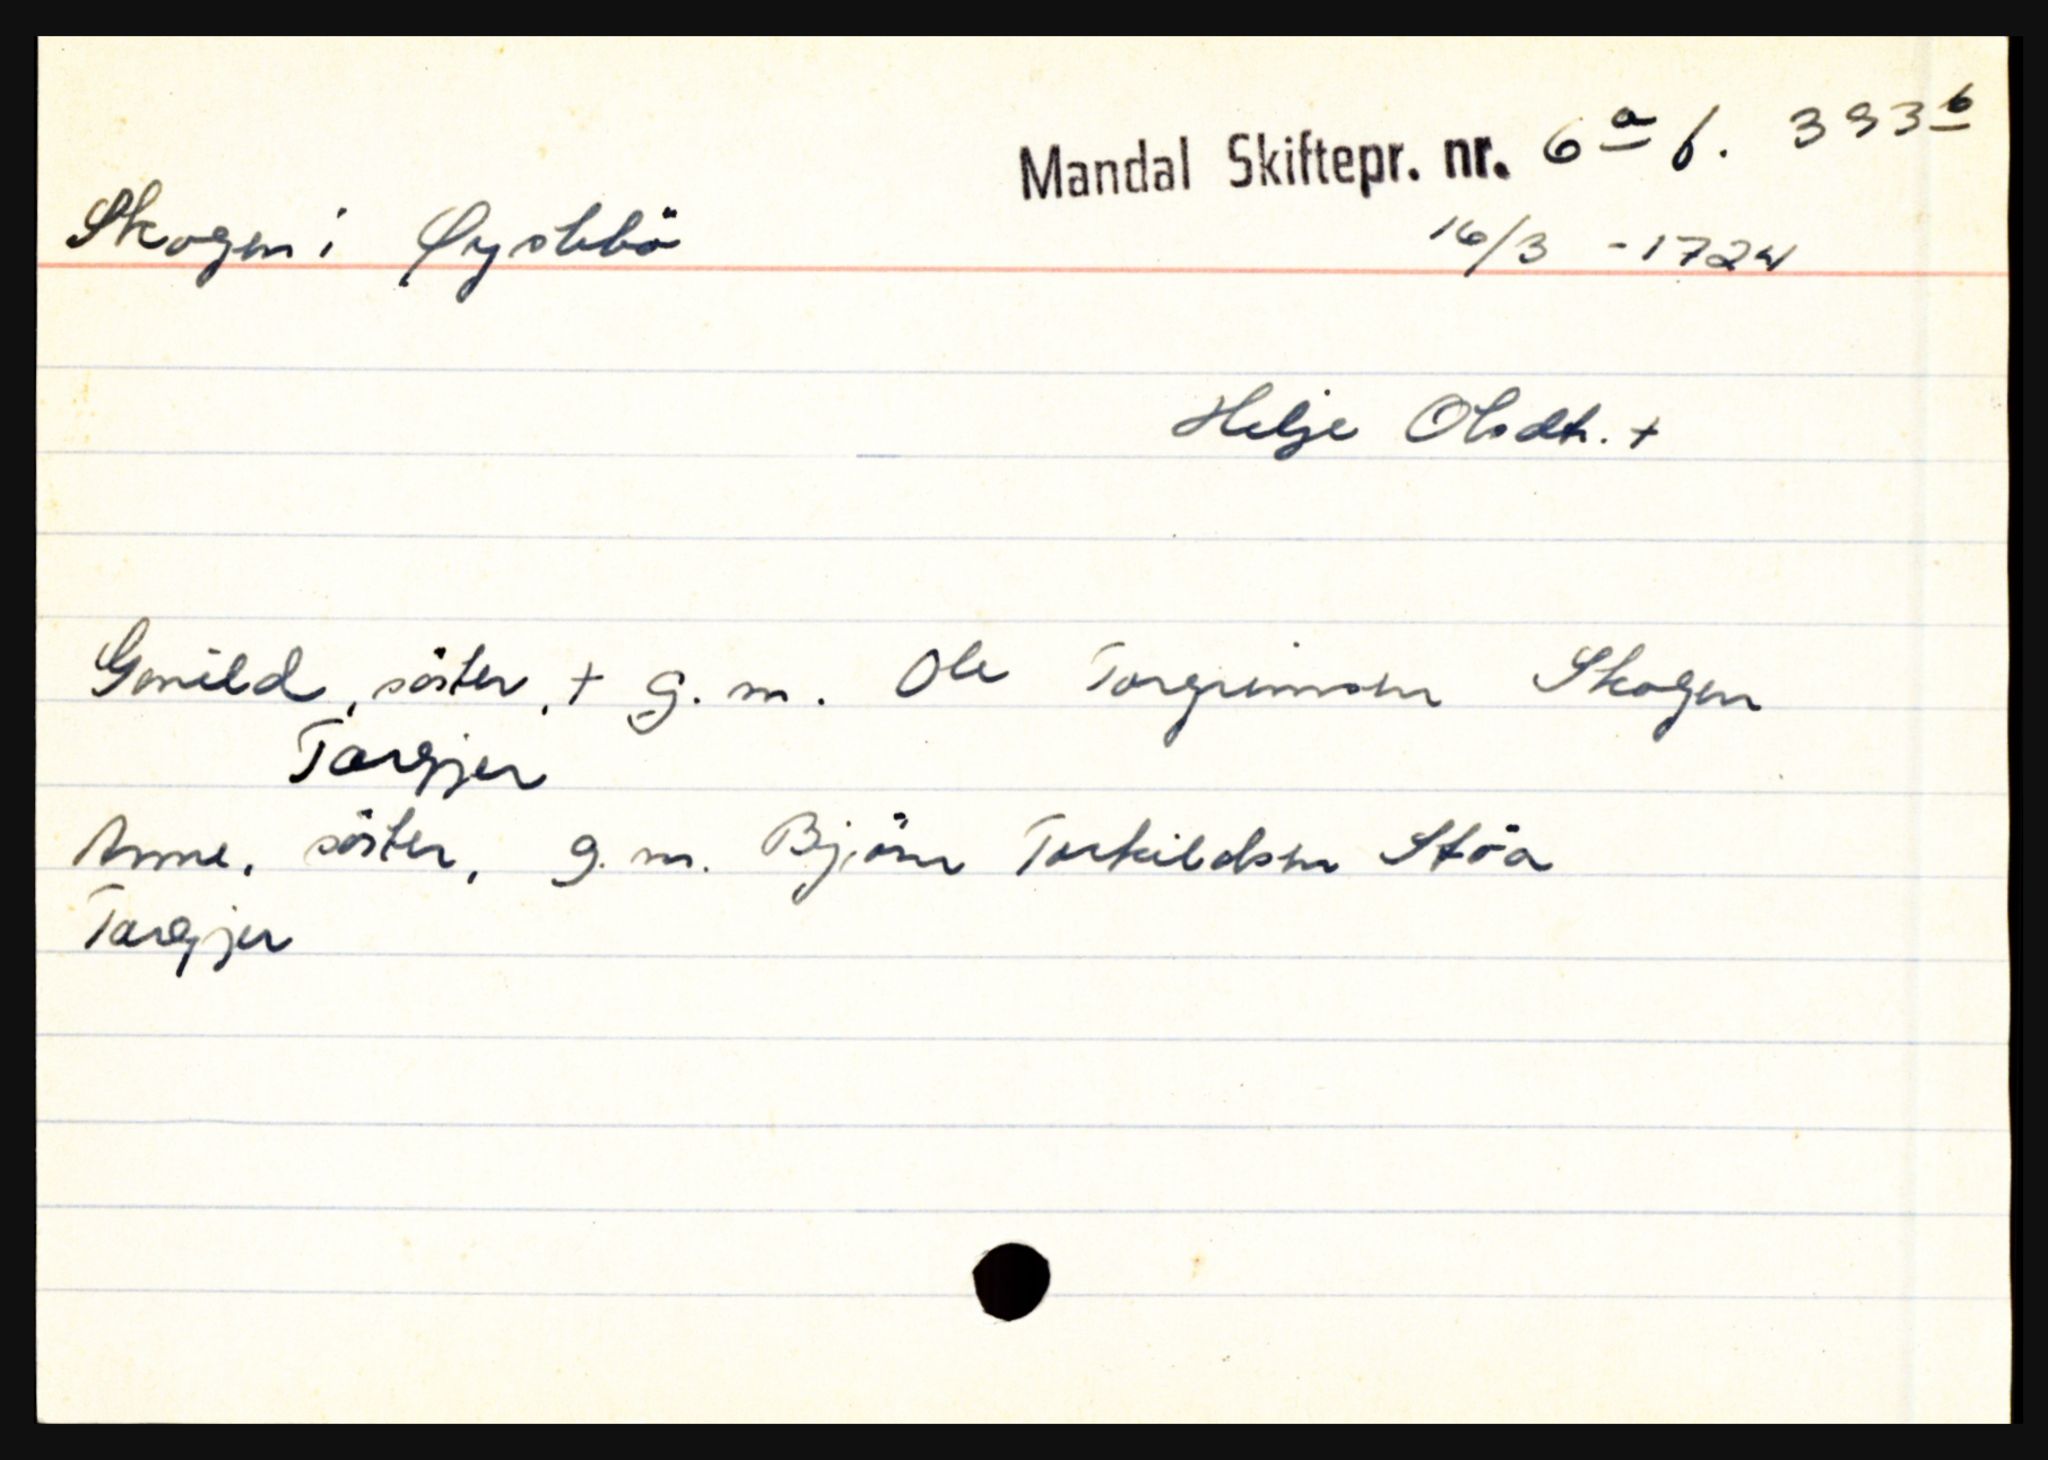 Mandal Skiftepr. nr. 6a f. 393b
Skogen i Øyslebö
16/3 - 1724
Helje Olsdt. +
Gunild, söster, + g. m. Ole Torgrimsen Skogen
Torgjer
Anne, söster, g. m. Björn Torkildsen Stöa
Torgjer